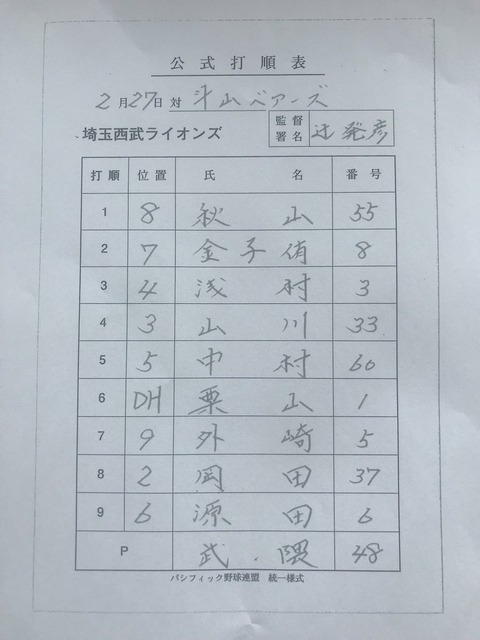 公式打順表
2月27日 対 斗山ベアーズ
埼玉西武ライオンズ 監督署名 辻発彦
打順 位置 氏名 番号
1 8 秋山 55
2 7 金子侑 8
3 4 浅村 3
4 3 山川 33
5 5 中村 60
6 DH 栗山 1
7 9 外崎 5
8 2 岡田 37
9 6 源田 6
P 武・隈 48
パシフィック野球連盟 統一様式